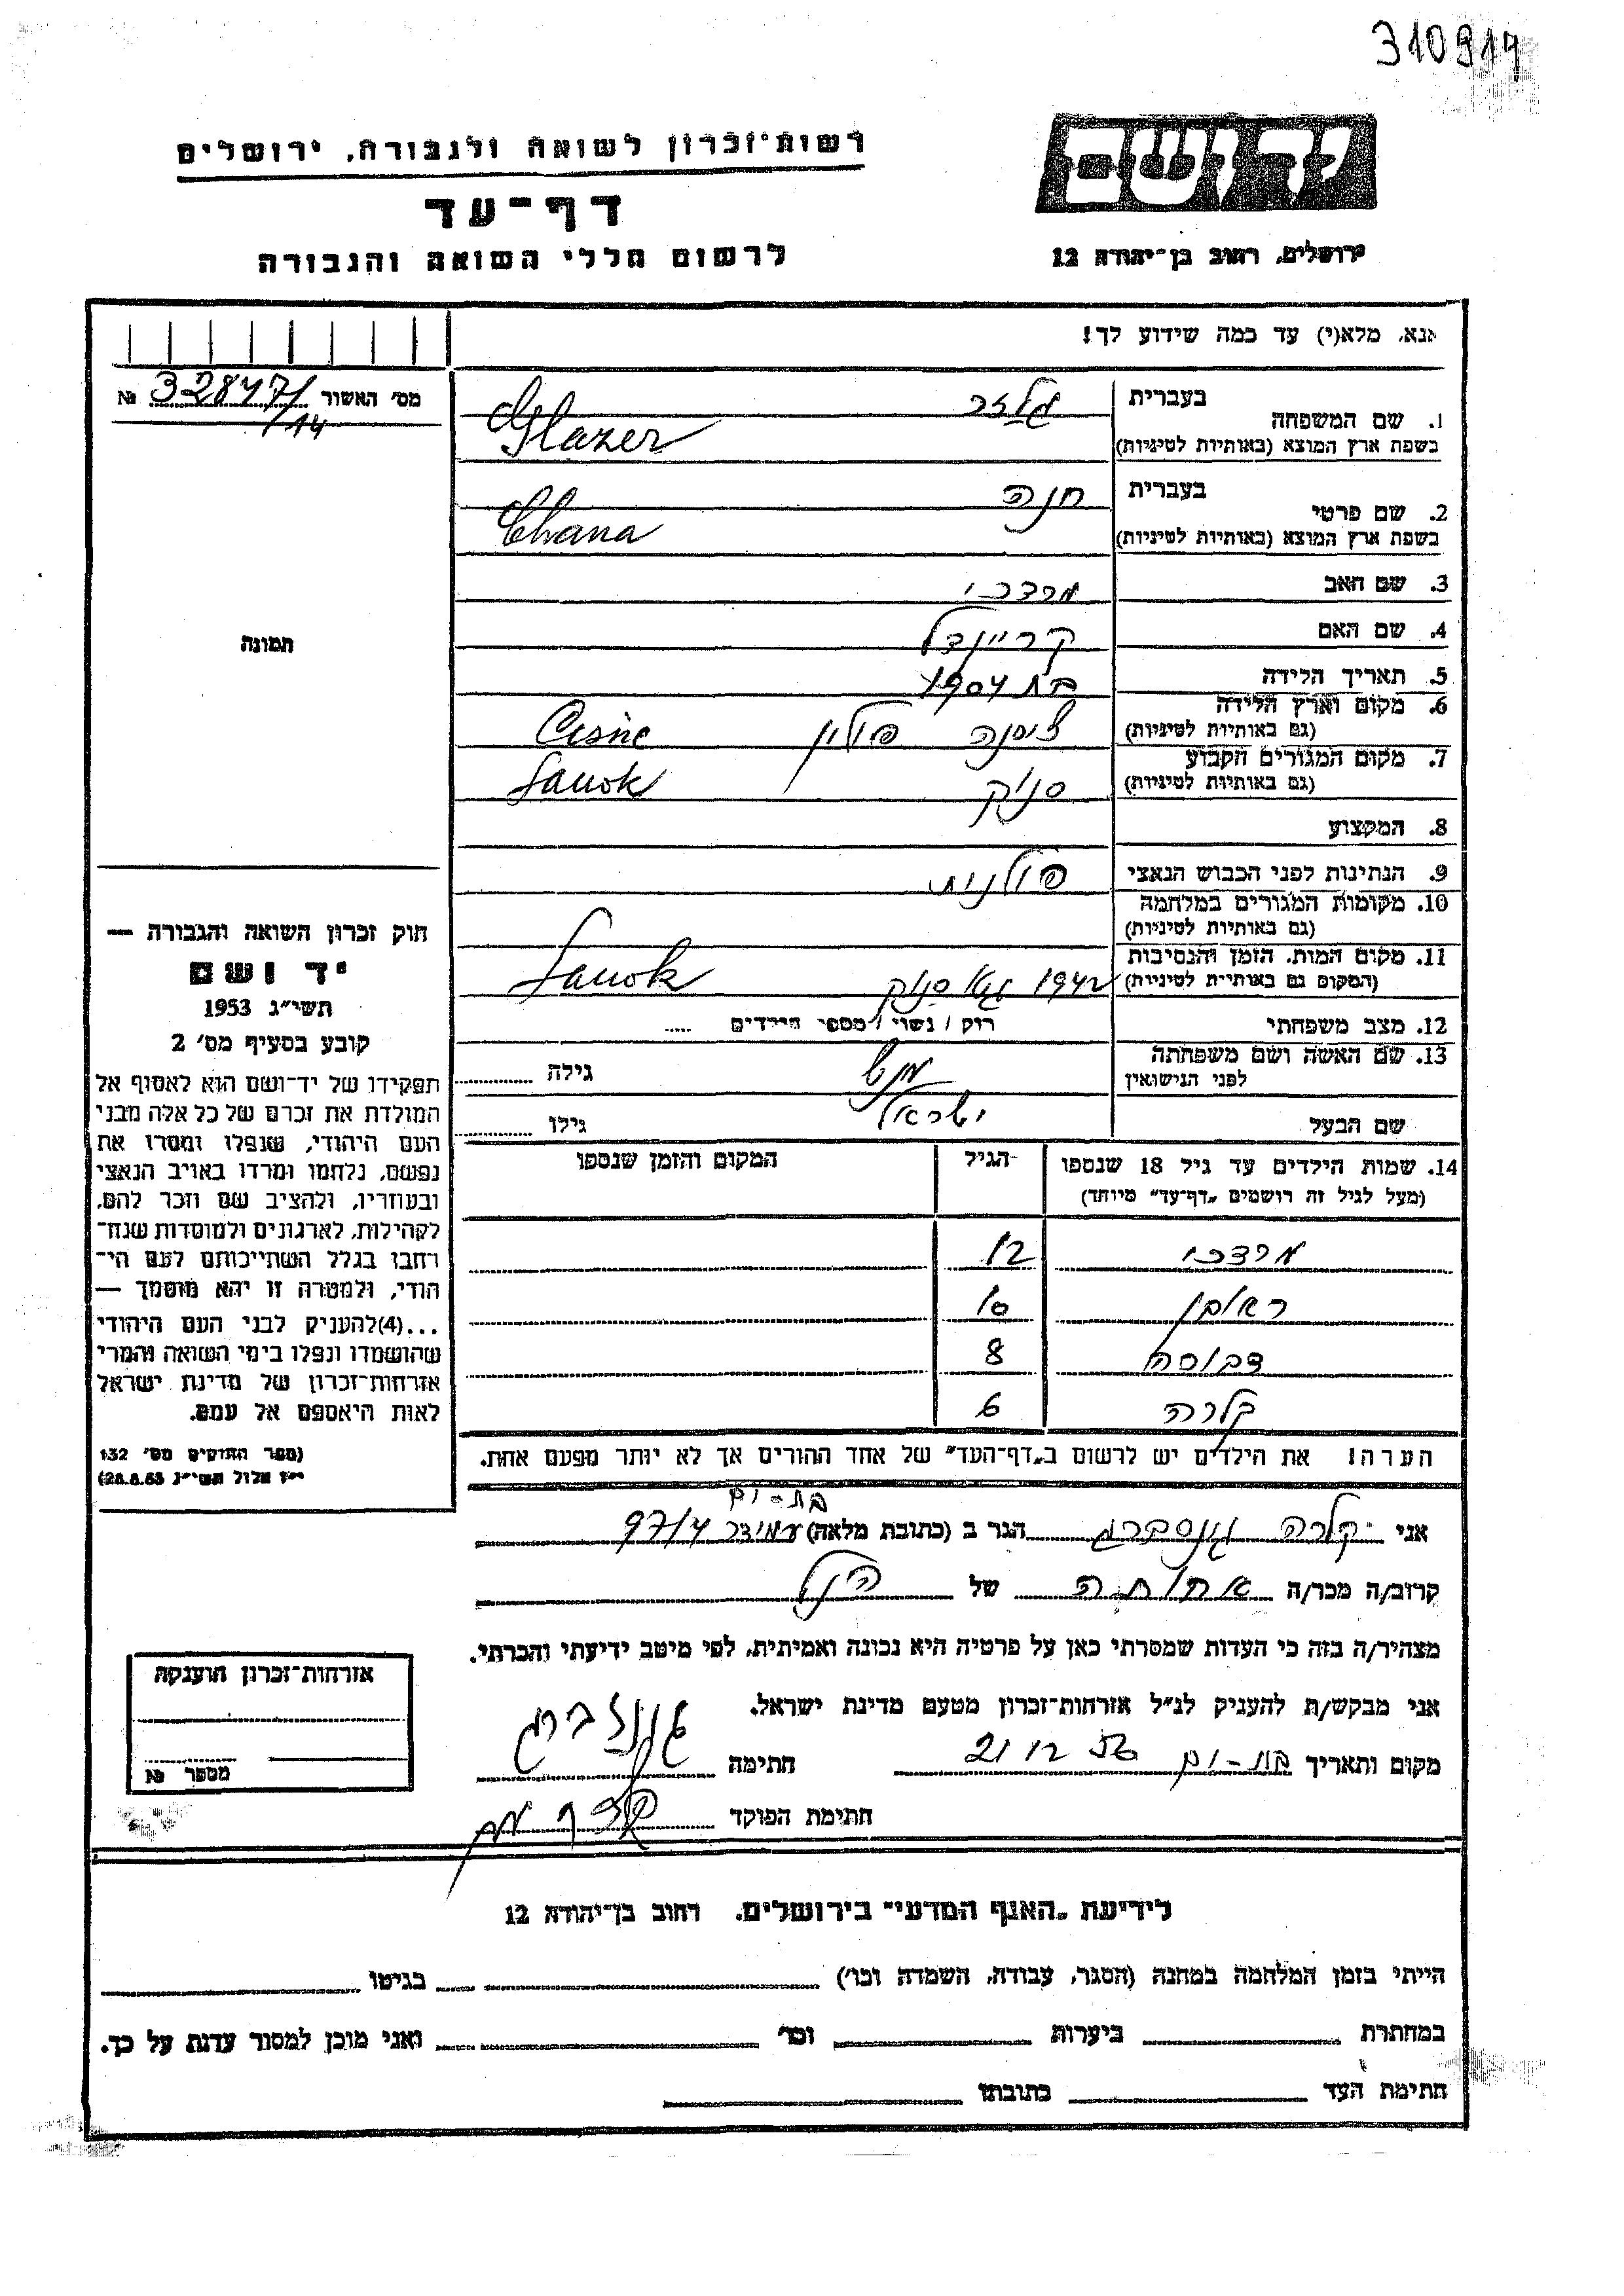 310914
יד ושם
רשות־זכרון לשואה ולגבורה, ירושלים
דף־עד
לרשום חללי השואה והגבורה
ירושלים, רחוב בן־יהודה 12
אנא, מלא(י) עד כמה שידוע לך!
מס׳ האשור 32847/14 №
תמונה
1. שם המשפחה בעברית גלזר
בשפת ארץ המוצא (באותיות לטיניות) Glazer
2. שם פרטי בעברית חנה
בשפת ארץ המוצא (באותיות לטיניות) Chana
3. שם האב מרדכי
4. שם האם קריינדל
5. תאריך הלידה בת 1904
6. מקום וארץ הלידה ציסנה פולין Cisne
(גם באותיות לטיניות)
7. מקום המגורים הקבוע סנוק Sanok
(גם באותיות לטיניות)
8. המקצוע
9. הנתינות לפני הכבוש הנאצי פולנית
10. מקומות המגורים במלחמה
(גם באותיות לטיניות)
11. מקום המות, הזמן והנסיבות
(המקום גם באותיות לטיניות) 1942 סנוק Sanok
12. מצב משפחתי רוק / נשוי / מספר הילדים .....
13. שם האשה ושם משפחתה
לפני הנישואין גילה
שם הבעל ישראל גילו
14. שמות הילדים עד גיל 18 שנספו הגיל המקום והזמן שנספו
(מעל לגיל זה רושמים „דף־עד״ מיוחד)
מרדכי 12
ראובן 10
דבורה 8
קלרה 6
הערה! את הילדים יש לרשום ב„דף־העד״ של אחד ההורים אך לא יותר מפעם אחת.
חוק זכרון השואה והגבורה —
יד ושם
תשי״ג 1953
קובע בסעיף מס׳ 2
תפקידו של יד־ושם הוא לאסוף אל
המולדת את זכרם של כל אלה מבני
העם היהודי, שנפלו ומסרו את
נפשם, נלחמו ומרדו באויב הנאצי
ובעוזריו, ולהציב שם וזכר להם,
לקהילות, לארגונים ולמוסדות שנח־
רבו בגלל השתייכותם לעם הי־
הודי, ולמטרה זו יהא מוסמך —
...(4) להעניק לבני העם היהודי
שהושמדו ונפלו בימי השואה והמרי
אזרחות־זכרון של מדינת ישראל
לאות היאספם אל עמם.
(ספר החוקים מס׳ 132
י״ז אלול תשי״ג 28.8.53)
בת-ים
אני קלרה גינסברג הגר ב (כתובת מלאה) עמידר 97/4
קרוב/ה מכר/ה אחותה של הנ״ל
מצהיר/ה בזה כי העדות שמסרתי כאן על פרטיה היא נכונה ואמיתית, לפי מיטב ידיעתי והכרתי.
אני מבקש/ת להעניק לנ״ל אזרחות־זכרון מטעם מדינת ישראל.
מקום ותאריך בת-ים 21 12 56 חתימה
חתימת הפוקד
אזרחות־זכרון הוענקה
מספר №
לידיעת „האגף המדעי״ בירושלים, רחוב בן־יהודה 12
הייתי בזמן המלחמה במחנה (הסגר, עבודה, השמדה וכו׳) בגיטו
במחתרת ביערות וכו׳ ואני מוכן למסור עדות על כך.
חתימת העד כתובתו